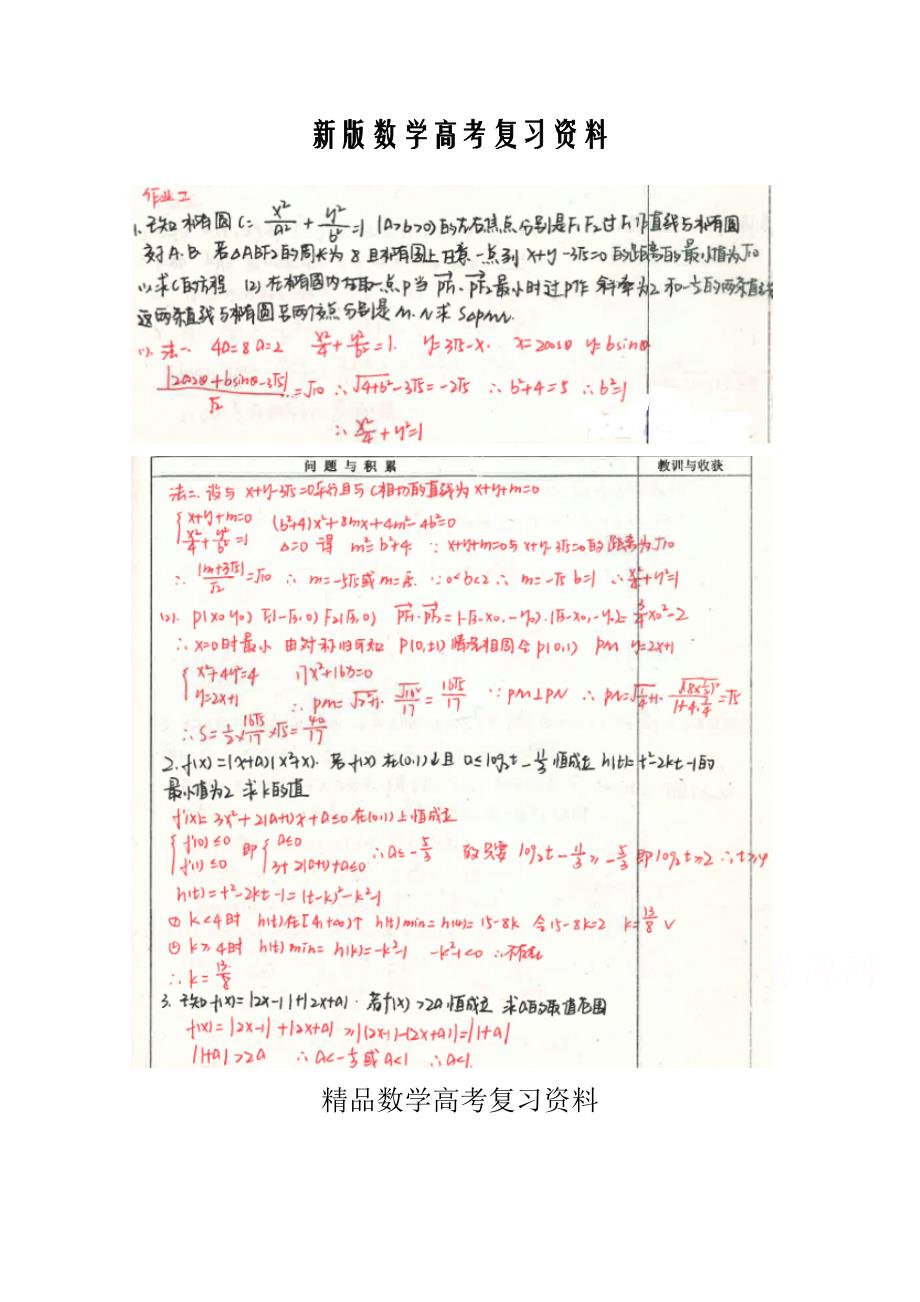 新版数学高考复习资料
作业工
1、已知椭圆C: x²/a² + y²/b² =1 (a>b>0)的左右焦点分别是F₁F₂过F₁作直线与椭圆
交于A.B. 若△ABF₂的周长为8且椭圆上任意一点到 x+y-3√5=0的距离的最小值为√10
(1)求C的方程 (2)在椭圆内有取一点P当 PF₁·PF₂最小时过P作 斜率为2和-½的两条直线
这两条直线与椭圆另两个交点分别是M.N求S△PMN.
(1). 法一 4a=8 a=2 x²/4+y²/b²=1. y=3√5-x. x=2cosθ y=bsinθ
|2cosθ+bsinθ-3√5|/√2=√10 ∴√4+b²-3√5=-2√5 ∴b²+4=5 ∴b²=1
∴x²/4+y²=1
问题与积累 教训与收获
法二、设与 x+y-3√5=0平行且与C相切的直线为x+y+m=0
{x+y+m=0 (b²+4)x²+8mx+4m²-4b²=0
x²/4+y²/b²=1 △=0 得 m²=b²+4 ∵x+y+m=0与x+y-3√5=0的距离为√10
∴|m+3√5|/√2=√10 ∴m=-5√5或m=-√5. ∵0<b<2 ∴m=-√5 b=1 ∴x²/4+y²=1
(2). P(x₀y₀) F₁(-√3,0) F₂(√3,0) PF₁·PF₂=(-√3-x₀,-y₀)·(√3-x₀,-y₀)=¾x₀²-2
∴x=0时最小 由对称性可知 P(0,±1)情况相同令P(0,1) PM y=2x+1
{x²+4y²=4 17x²+16x=0
y=2x+1 ∴PM=√2²+1·√16²/17=16√5/17 ∵PM⊥PN ∴PN=√¼+1·√(8×½)²/1+4·¼=√5
∴S=½×16√5/17×√5=40/17
2.f(x)=(x+a)(x²+x). 若f(x)在(0,1)↓且 a≤log₂t-11/3恒成立 h(t)=t²-2kt-1的
最小值为2 求k的值
f'(x)=3x²+2(a+1)x+a≤0在(0,1)上恒成立
{f'(0)≤0 即{a≤0
f'(1)≤0 3+2(a+1)+a≤0 ∴a≤-5/3 故只要 log₂t-11/3≥-5/3即log₂t≥2∴t≥4
h(t)=t²-2kt-1=(t-k)²-k²-1
①k<4时 h(t)在[4,+∞)↑ h(t)min=h(4)=15-8k 令15-8k=2 k=13/8 √
②k≥4时 h(t)min=h(k)=-k²-1 -k²-1<0 ∴不存在
∴k=13/8
3.已知f(x)=|2x-1|+|2x+a|. 若f(x)>2a恒成立 求a的取值范围
f(x)=|2x-1|+|2x+a|≥|(2x-1)-(2x+a)|=|1+a|
|1+a|>2a ∴a<-⅓或a<1 ∴a<1.
精品数学高考复习资料